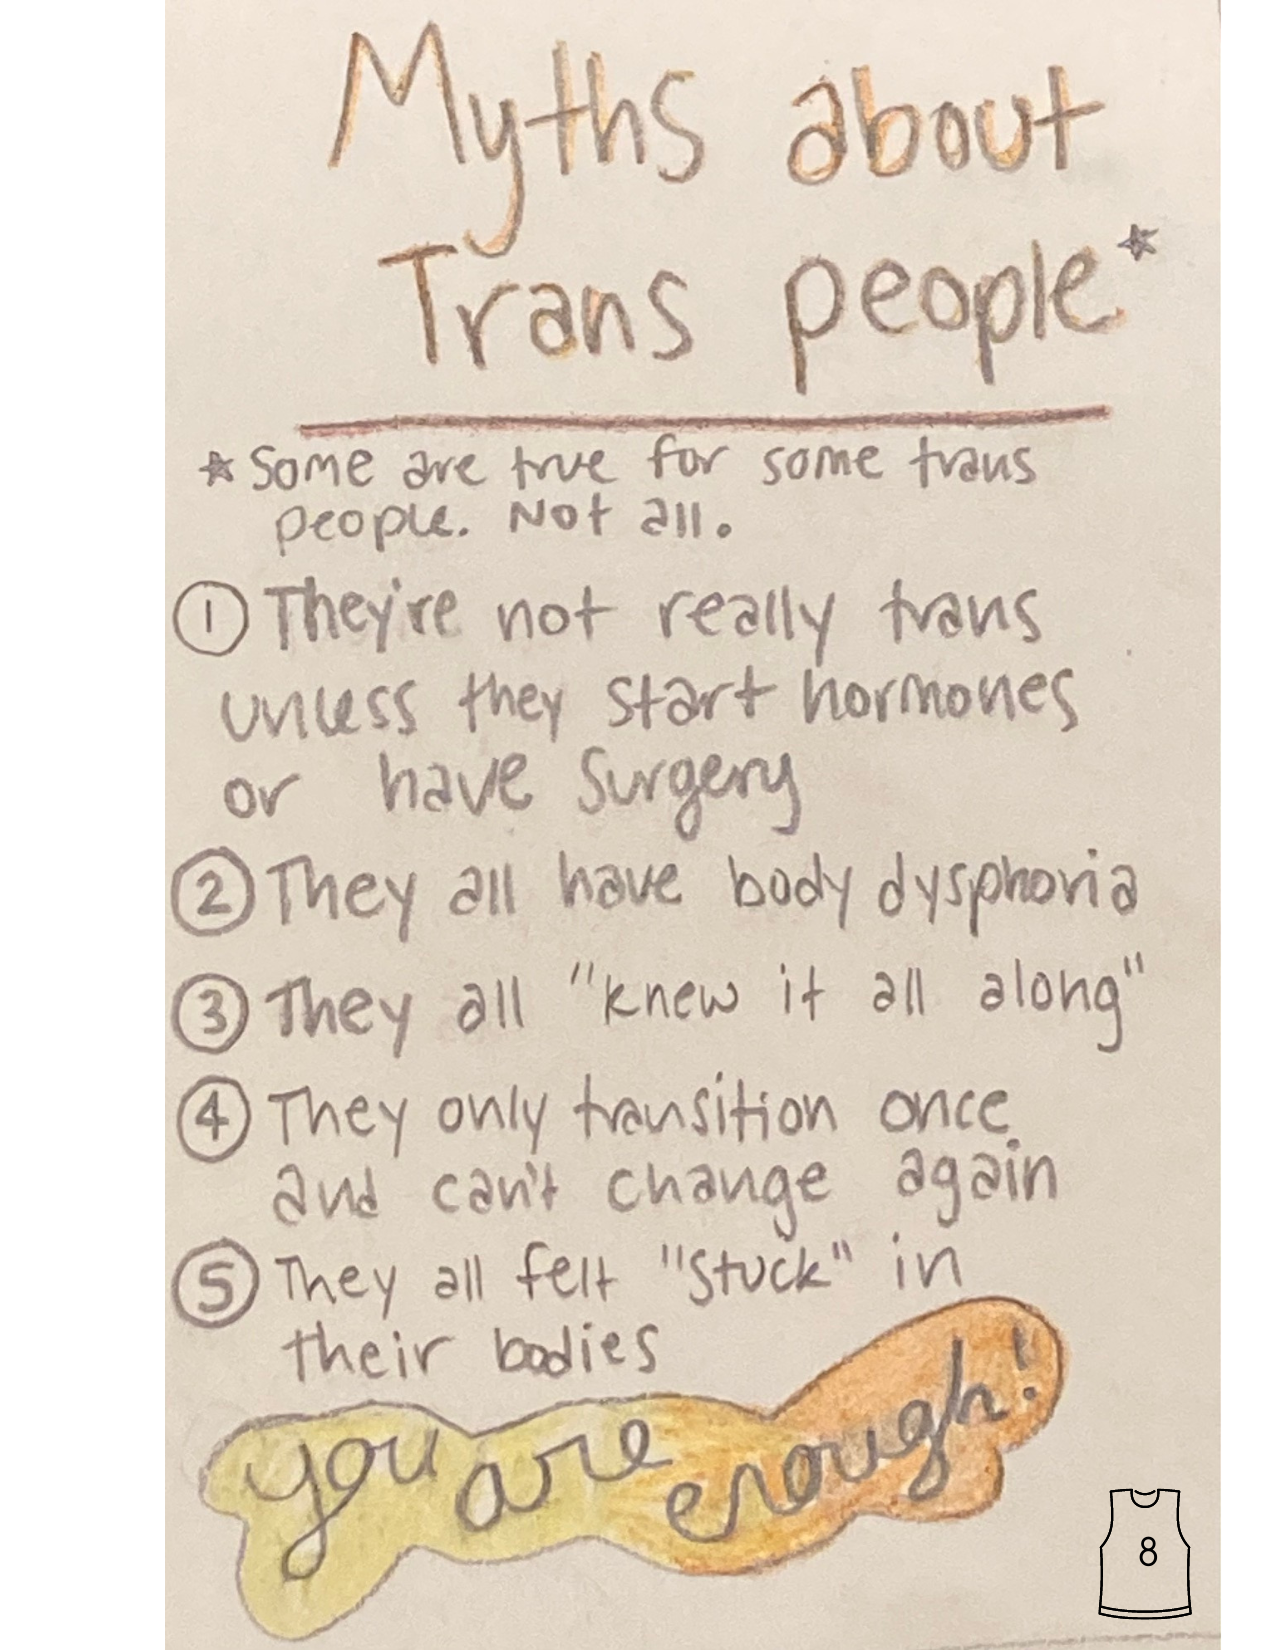 Myths about
Trans people*
* Some are true for some trans
people. Not all.
① They're not really trans
unless they start hormones
or have surgery
② They all have body dysphoria
③ They all "knew it all along"
④ They only transition once
and can't change again
⑤ They all felt "stuck" in
their bodies
you are enough!
8